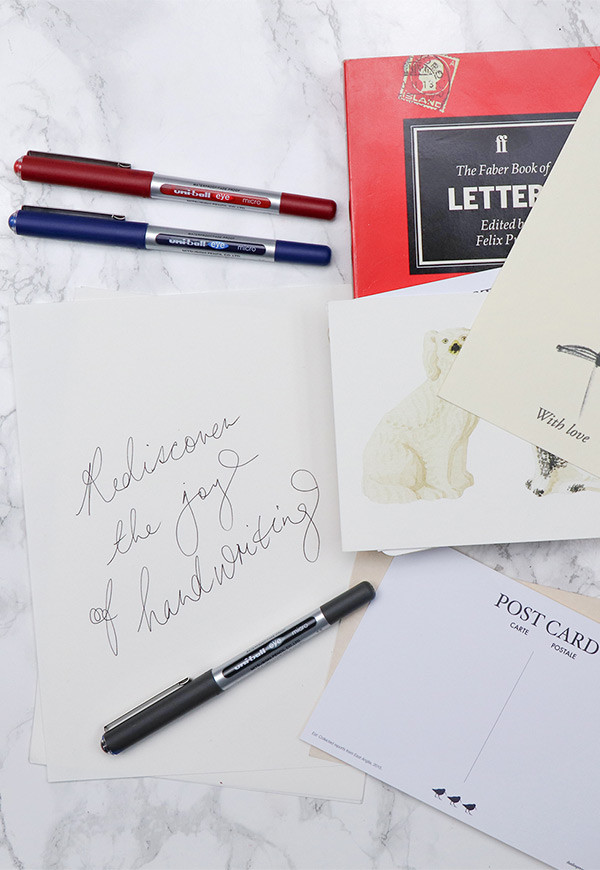 ISLAND
ff
The Faber Book of
LETTER
Edited b
Felix Pr
uni-ball eye micro
uni-ball eye micro
With love
Rediscover
the joy
of handwriting
uni-ball eye micro
POST CARD
CARTE POSTALE